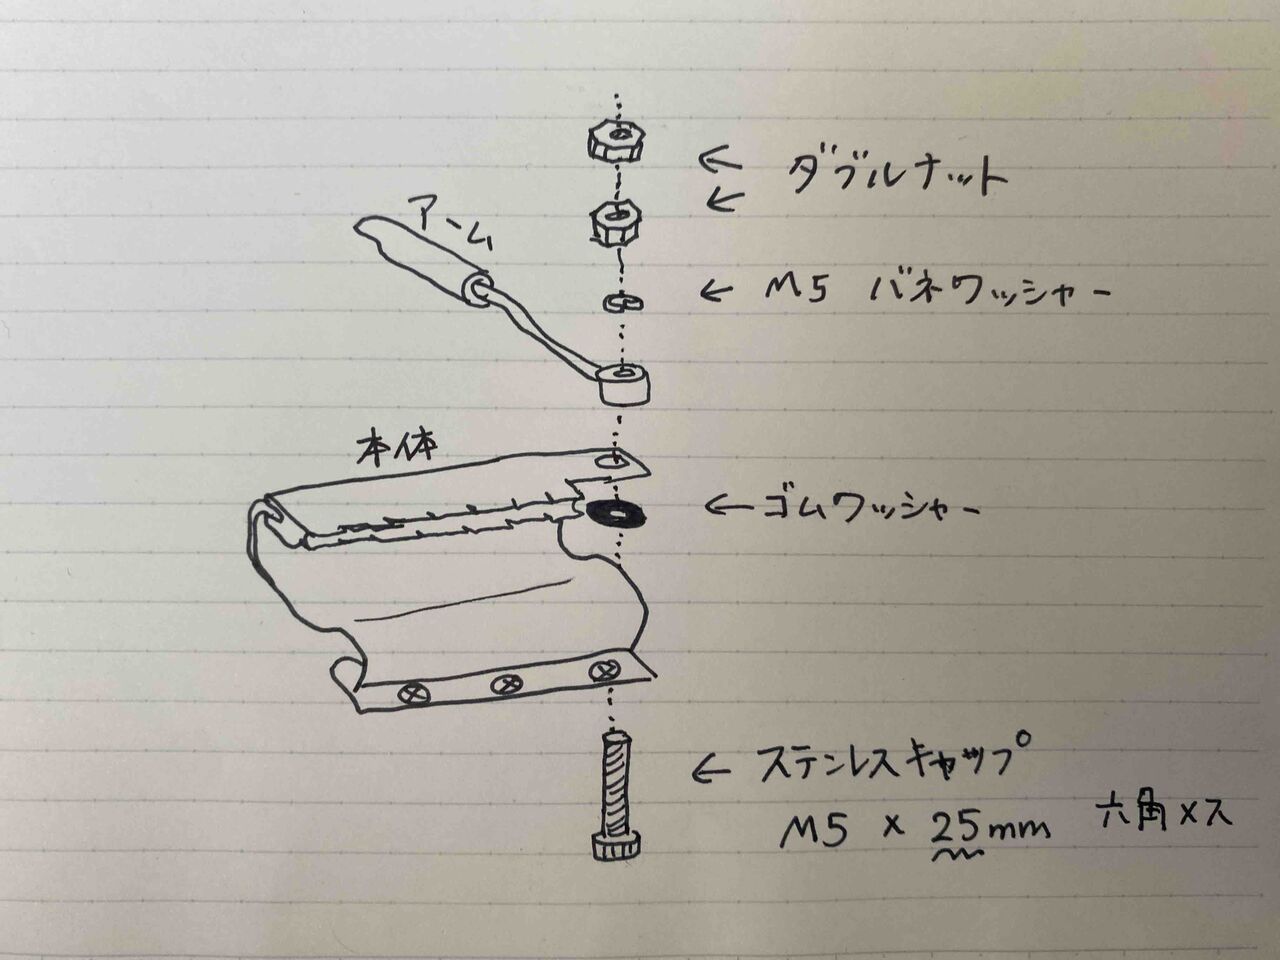 ダブルナット
アーム
M5 バネワッシャー
本体
ゴムワッシャー
ステンレスキャップ
M5 × 25mm 六角メス